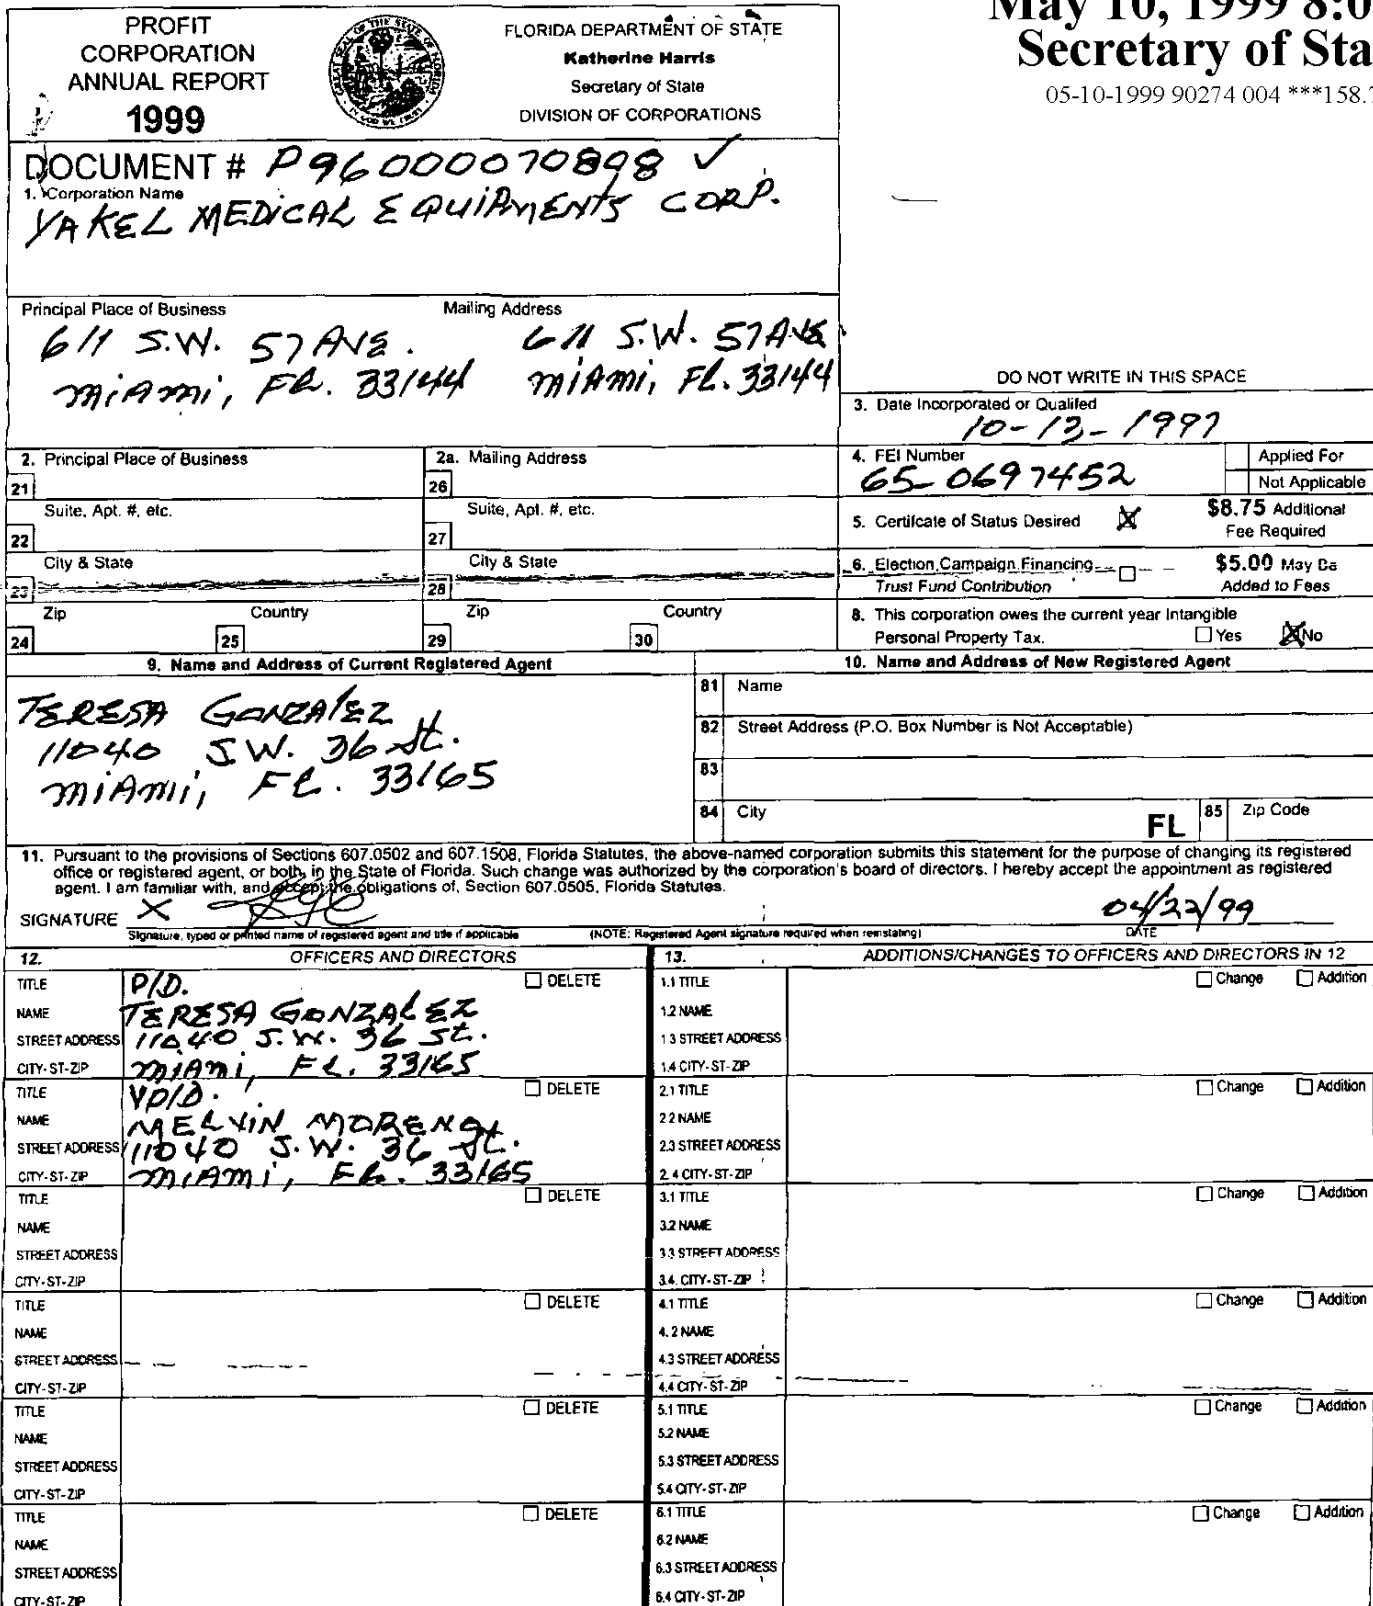 PROFIT
CORPORATION
ANNUAL REPORT
1999
FLORIDA DEPARTMENT OF STATE
Katherine Harris
Secretary of State
DIVISION OF CORPORATIONS
May 10, 1999 8:0
Secretary of Sta
05-10-1999 90274 004 ***158.7
DOCUMENT # P96000070898 ✓
1. Corporation Name
YAKEL MEDICAL EQUIPMENTS CORP.
Principal Place of Business Mailing Address
611 S.W. 57 AVE. 611 S.W. 57 AVE.
MIAMI, FL. 33144 MIAMI, FL. 33144
DO NOT WRITE IN THIS SPACE
3. Date Incorporated or Qualifed
10-13-1997
2. Principal Place of Business 2a. Mailing Address
21 26
4. FEI Number Applied For
65-0697452 Not Applicable
Suite, Apt. #, etc. Suite, Apt. #, etc.
22 27
5. Certifcate of Status Desired X $8.75 Additional
Fee Required
City & State City & State
23 28
6. Election Campaign Financing $5.00 May Be
Trust Fund Contribution Added to Fees
Zip Country Zip Country
24 25 29 30
8. This corporation owes the current year Intangible
Personal Property Tax. Yes X No
9. Name and Address of Current Registered Agent
TERESA GONZALEZ
11040 S.W. 36 St.
MIAMI, FL. 33165
10. Name and Address of New Registered Agent
81 Name
82 Street Address (P.O. Box Number is Not Acceptable)
83
84 City FL 85 Zip Code
11. Pursuant to the provisions of Sections 607.0502 and 607.1508, Florida Statutes, the above-named corporation submits this statement for the purpose of changing its registered
office or registered agent, or both, in the State of Florida. Such change was authorized by the corporation's board of directors. I hereby accept the appointment as registered
agent. I am familiar with, and accept the obligations of, Section 607.0505, Florida Statutes.
SIGNATURE X 04/22/99
Signature, typed or printed name of registered agent and title if applicable (NOTE: Registered Agent signature required when reinstating) DATE
12. OFFICERS AND DIRECTORS
TITLE P/D. DELETE
NAME TERESA GONZALEZ
STREET ADDRESS 11040 S.W. 36 St.
CITY-ST-ZIP MIAMI, FL. 33165
TITLE VP/D. DELETE
NAME MELVIN MORENO
STREET ADDRESS 11040 S.W. 36 St.
CITY-ST-ZIP MIAMI, FL. 33165
TITLE DELETE
NAME
STREET ADDRESS
CITY-ST-ZIP
TITLE DELETE
NAME
STREET ADDRESS
CITY-ST-ZIP
TITLE DELETE
NAME
STREET ADDRESS
CITY-ST-ZIP
TITLE DELETE
NAME
STREET ADDRESS
CITY-ST-ZIP
13. ADDITIONS/CHANGES TO OFFICERS AND DIRECTORS IN 12
1.1 TITLE Change Addition
1.2 NAME
1.3 STREET ADDRESS
1.4 CITY-ST-ZIP
2.1 TITLE Change Addition
2.2 NAME
2.3 STREET ADDRESS
2.4 CITY-ST-ZIP
3.1 TITLE Change Addition
3.2 NAME
3.3 STREET ADDRESS
3.4. CITY-ST-ZIP
4.1 TITLE Change Addition
4.2 NAME
4.3 STREET ADDRESS
4.4 CITY-ST-ZIP
5.1 TITLE Change Addition
5.2 NAME
5.3 STREET ADDRESS
5.4 CITY-ST-ZIP
6.1 TITLE Change Addition
6.2 NAME
6.3 STREET ADDRESS
6.4 CITY-ST-ZIP